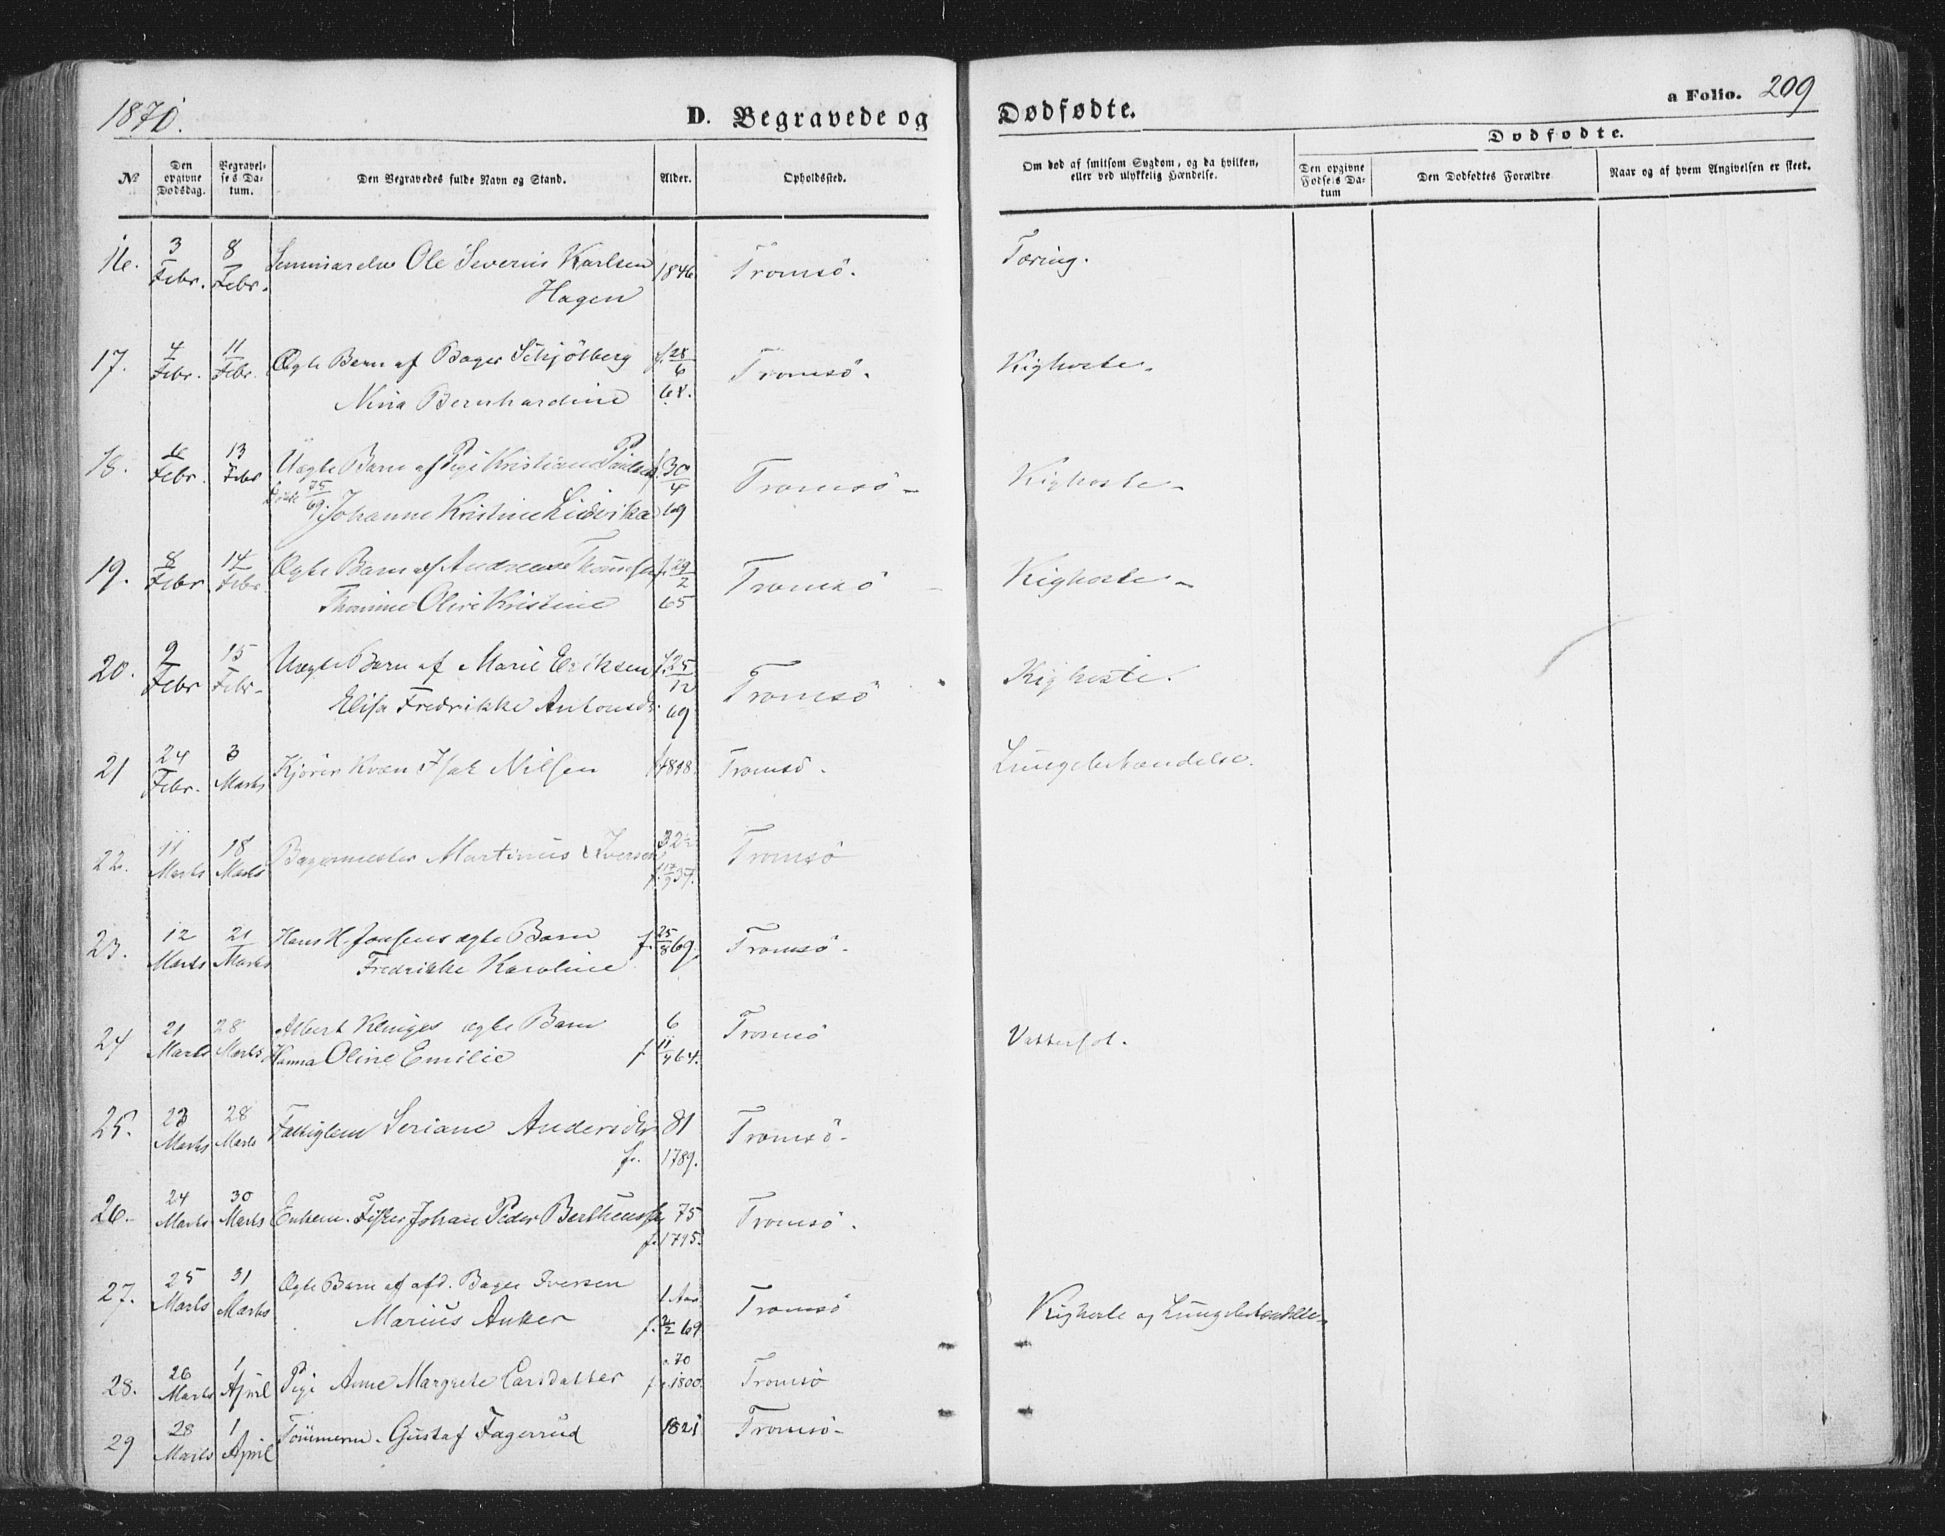 1870.
D. Begravede og Dødfødte.
a Folio. 209
No
Den opgivne Dødsdag.
Begravelses Datum.
Den Begravedes fulde Navn og Stand.
Alder.
Opholdssted.
Om død af smitsom Sygdom, og da hvilken, eller ved ulykkelig Hændelse.
Dødfødte.
Den opgivne Fødsels Datum
Den Dødfødtes Forældre
Naar og af hvem Angivelsen er skeet.
16. 3 Febr. 8 Febr. Ole Severin Karlsen 1846 Tromsö. Tæring.
Hagen
17. 4 Febr. 11 Febr. Ægte Barn af Bager Schjölberg f. 28/6 Tromsö. Kighoste.
Nina Bernhardine 68.
18. Febr. 13 Febr Uægte Barn af Pige Kristiane f. 30/4 Tromsö Kighoste
Johanne Kristine 69
19. 8 Febr 14 Febr Ægte Barn af Andreas Thomsen f. 29/2 Tromsö Kighoste
Thomine Olive Kristine 65
20. 9 Febr 15 Febr Uægte Barn af Marie Eriksen f. 25/12 Tromsö Kighoste.
Elisa Fredrikke Antonsdr 69
21 24 Febr. 3 Marts Kjører Kvæn Isak Nilsen Tromsö. Lungebetændelse.
22. 11 Marts 18 Marts Bagermester Martinus Iversen 32½ Tromsö
37.
23. 12 Marts 21 Marts Hans H. Jensens ægte Barn f. 25/8 69. Tromsö.
Fredrikke Karoline
24 21 Marts 28 Marts Albert Klinges ægte Barn 6 Tromsö Vattersot.
Hanna Oline Emilie f 64.
25. 23 Marts 28 Marts Fattiglem Seriane Andersdtr 81 Tromsö.
f. 1789.
26. 24 Marts 30 Marts Enkem. Fisker Johan Peder 75 Tromsö.
f. 1795.
27. 25 Marts 31 Marts Ægte Barn af afd. Bager Iversen 1 Aar Tromsö Kighoste og Lungebetændelse
Marius Anker f. 69
28. 26 Marts 1 April Pige Anne Margrete Carsdatter 70 f. 1800. Tromsö
29 28 Marts 1 April Tömmerm. Gustaf Fagerrud 1821 Tromsö